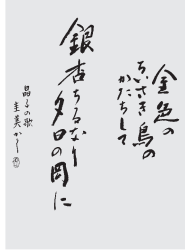 金色の
ちいさき鳥の
かたちして
銀杏ちるなり
夕日の岡に
晶子の歌
圭美かく